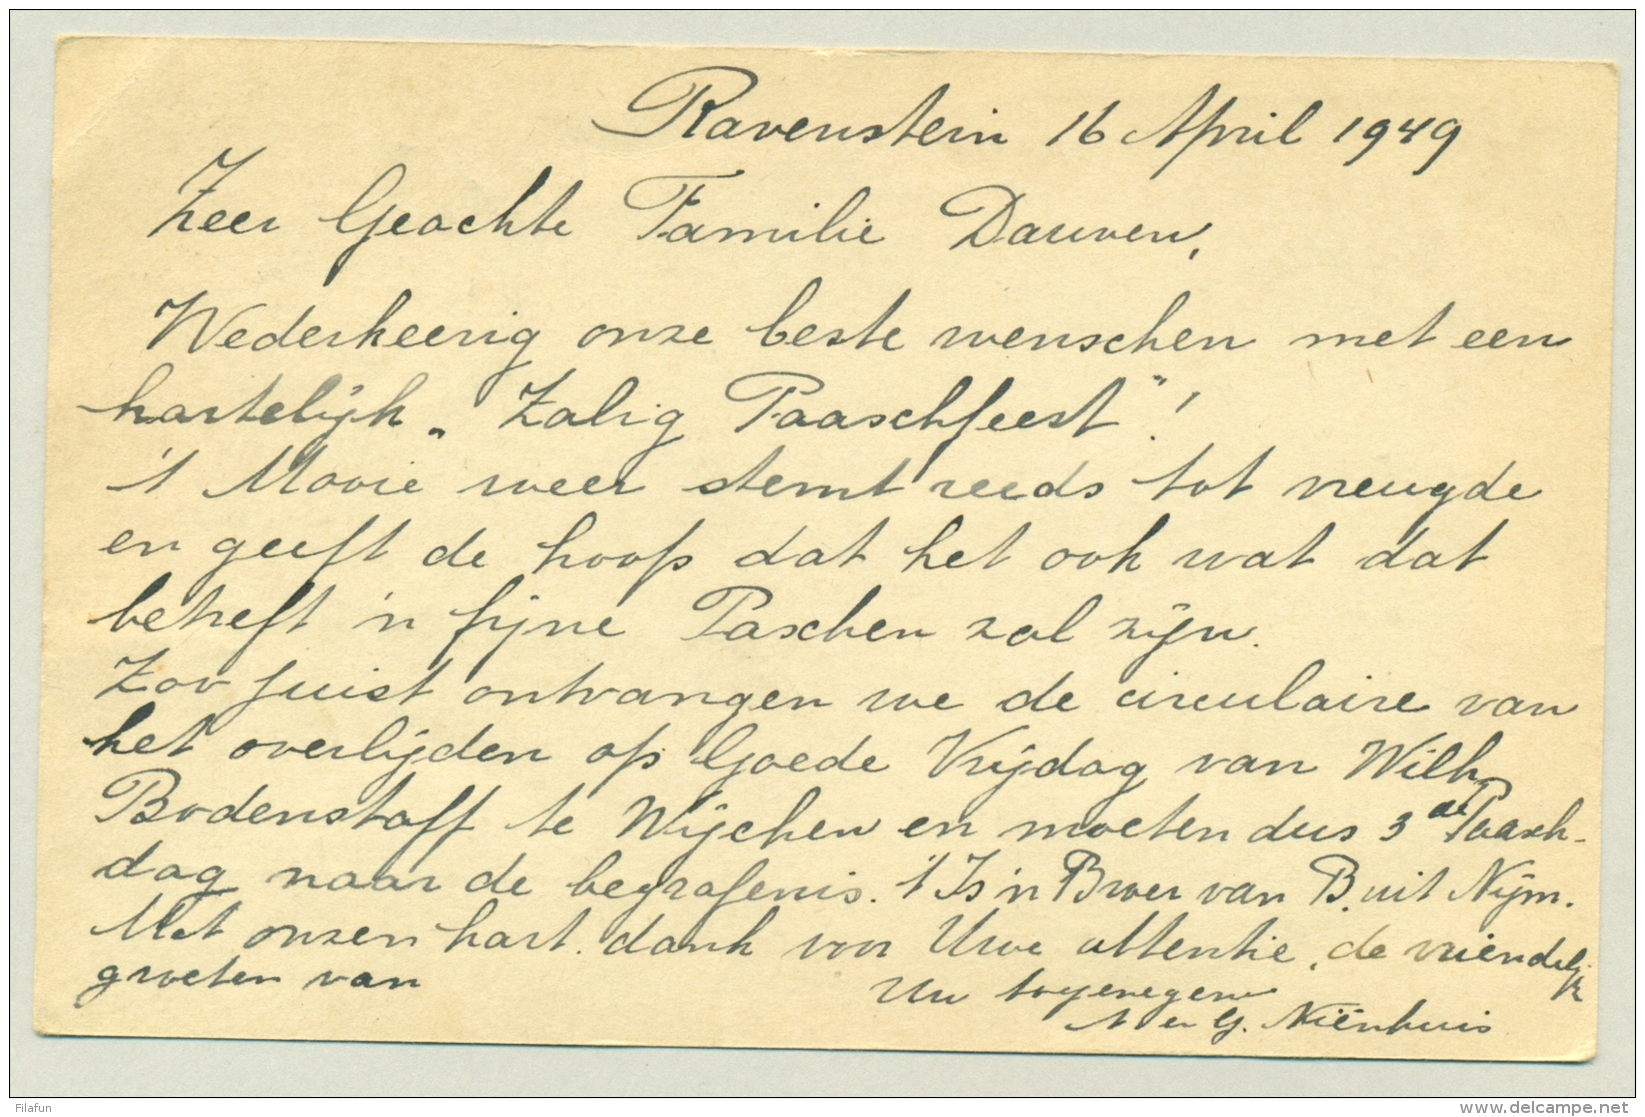 Ravenstein 16 April 1949
Zeer Geachte Familie Dauven,
Wederkeerig onze beste wenschen met een
hartelijk „Zalig Paaschfeest"!
't Mooie weer stemt reeds tot vreugde
en geeft de hoop dat het ook wat dat
betreft 'n fijne Paschen zal zijn.
Zoo juist ontvangen we de circulaire van
het overlijden op Goede Vrijdag van Wilh
Bodenstaff te Wijchen en moeten dus 3de Paasch-
dag naar de begrafenis. 't Is 'n Broer van B. uit Nijm.
Met onzen hart. dank voor Uwe attentie, de vriendelijk
groeten van
Uw toegenegen
A en G. Niënhuis
Filafun
www.delcampe.net